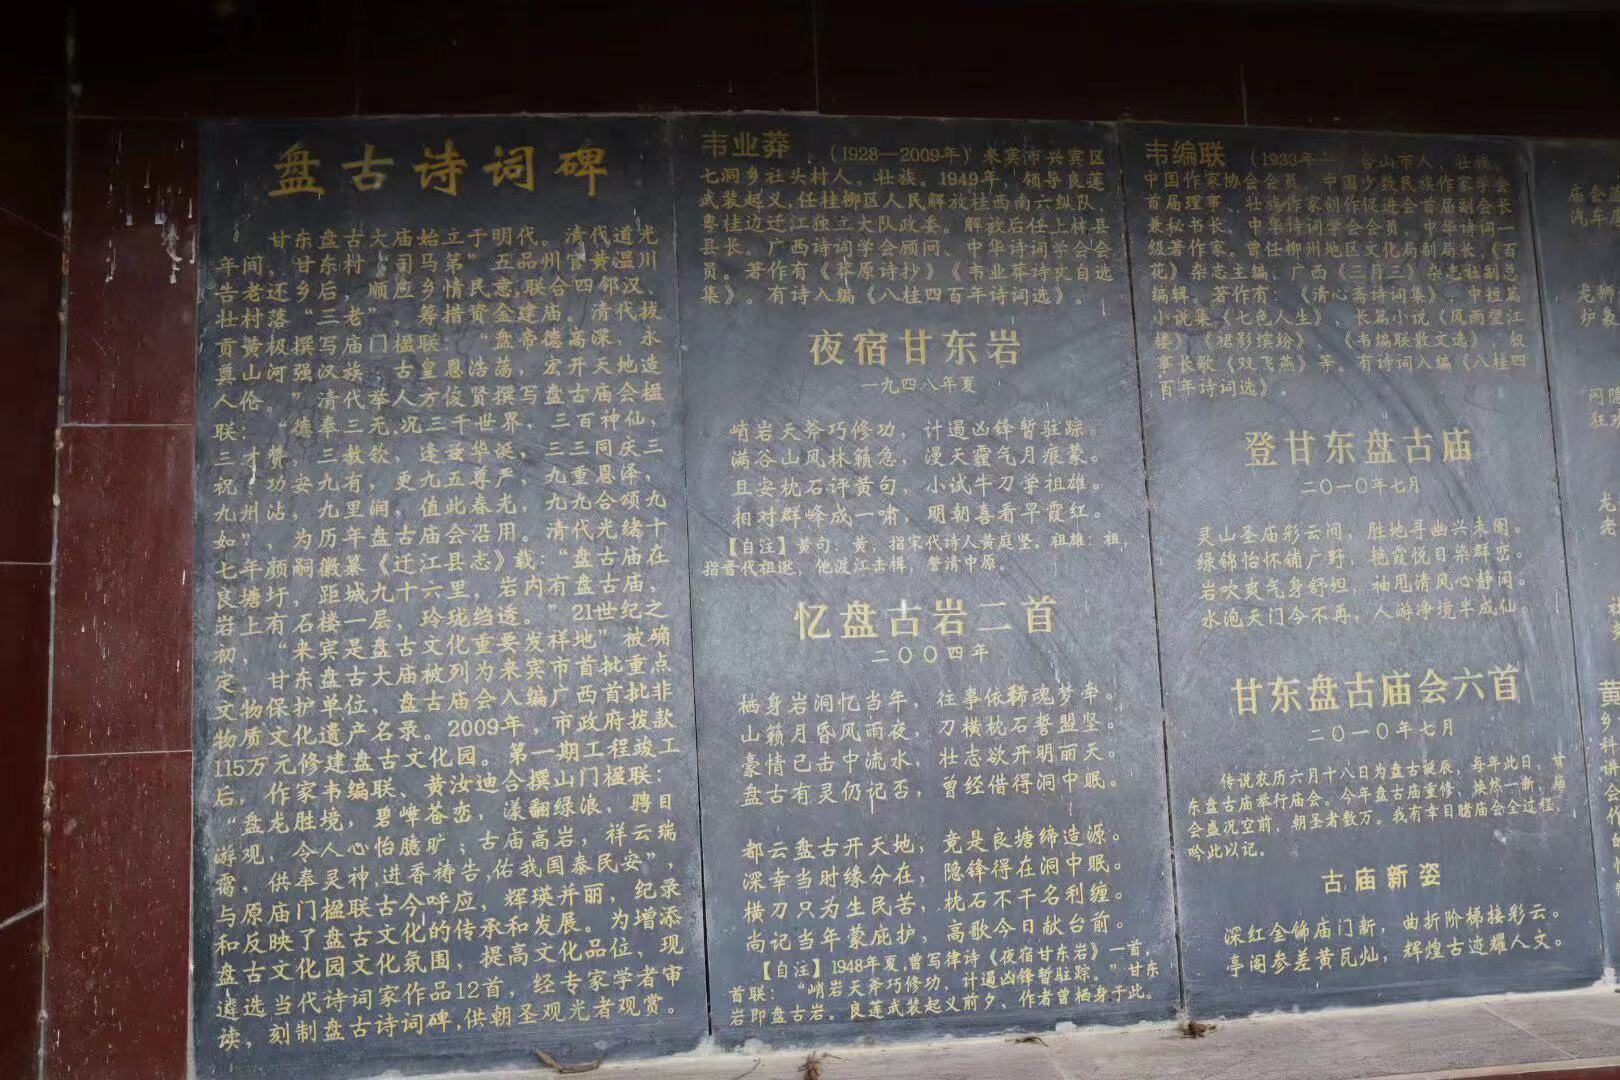 盘古诗词碑
甘东盘古大庙始立于明代。清代道光
年间，甘东村“司马第”五品州官黄温川
告老还乡后，顺应乡情民意,联合四邻汉、
壮村落“三老”，筹措资金建庙。清代拔
贡黄极撰写庙门楹联：“盘帝德高深，永
奠山河强汉族；古皇恩浩荡，宏开天地造
人伦。”清代举人方俊贤撰写盘古庙会楹
联：“德奉三无,况三千世界，三百神仙，
三才赞，三教钦，逢圣华诞，三三同庆三
祝；功安九有，更九五尊严，九重恩泽，
九州沾，九里润，值此春光，九九合颂九
如”，为历年盘古庙会沿用。清代光绪十
七年颜嗣徽纂《迁江县志》载：“盘古庙在
良塘圩，距城九十六里，岩内有盘古庙，
岩上有石楼一层，玲珑绉透。”21世纪之
初，“来宾是盘古文化重要发祥地”被确
定，甘东盘古大庙被列为来宾市首批重点
文物保护单位，盘古庙会入编广西首批非
物质文化遗产名录。2009年，市政府拨款
115万元修建盘古文化园。第一期工程竣工
后，作家韦编联、黄汝迪合撰山门楹联：
“盘龙胜境，碧嶂苍峦，漾翻绿浪，骋目
游观，令人心怡臆旷；古庙高岩，祥云瑞
霭，供奉灵神,进香祷告,佑我国泰民安”，
与原庙门楹联古今呼应，辉瑛并丽，纪录
和反映了盘古文化的传承和发展。为增添
盘古文化园文化氛围，提高文化品位，现
遴选当代诗词家作品12首，经专家学者审
读，刻制盘古诗词碑,供朝圣观光者观赏。
韦业莽（1928—2009年）来宾市兴宾区
七洞乡社头村人，壮族。1949年，领导良莲
武装起义,任桂柳区人民解放桂西南六纵队、
粤桂边迁江独立大队政委。解放后任上林县
县长。广西诗词学会顾问、中华诗词学会会
员。著作有《莽原诗抄》《韦业莽诗文自选
集》。有诗入编《八桂四百年诗词选》。
夜宿甘东岩
一九四八年夏
峭岩天斧巧修功，计遏凶锋暂驻踪。
满谷山风林籁急，漫天霾气月痕蒙。
且安枕石评黄句，小试牛刀学祖雄。
相对群峰成一啸，明朝喜看早霞红。
【自注】黄句：黄，指宋代诗人黄庭坚。祖雄：祖，
指晋代祖逖，他渡江击楫，誓清中原。
忆盘古岩二首
二〇〇四年
栖身岩洞忆当年，往事依稀魂梦牵。
山籁月昏风雨夜，刀横枕石誓盟坚。
豪情已击中流水，壮志欲开明丽天。
盘古有灵仍记否，曾经借得洞中眠。
都云盘古开天地，竟是良塘缔造源。
深幸当时缘分在，隐锋得在洞中眠。
横刀只为生民苦，枕石不干名利缠。
尚记当年蒙庇护，高歌今日献台前。
【自注】1948年夏,曾写律诗《夜宿甘东岩》一首，
首联：“峭岩天斧巧修功，计遏凶锋暂驻踪。”甘东
岩即盘古岩。良莲武装起义前夕，作者曾栖身于此。
韦编联（1933年— ）合山市人，壮族。
中国作家协会会员，中国少数民族作家学会
首届理事、壮族作家创作促进会首届副会长
兼秘书长。中华诗词学会会员，中华诗词一
级著作家。曾任柳州地区文化局副局长，《百
花》杂志主编，广西《三月三》杂志社副总
编辑。著作有：《清心斋诗词集》，中短篇
小说集《七色人生》，长篇小说《风雨望江
楼》《裙影缤纷》《韦编联散文选》，叙
事长歌《双飞燕》等。有诗词入编《八桂四
百年诗词选》。
登甘东盘古庙
二〇一〇年七月
灵山圣庙彩云间，胜地寻幽兴未阑。
绿锦怡怀铺广野，艳霞悦目染群峦。
岩吹爽气身舒坦，袖甩清风心静闲。
水泡天门今不再，人游净境半成仙。
甘东盘古庙会六首
二〇一〇年七月
传说农历六月十八日为盘古诞辰，每年此日，甘
东盘古庙举行庙会。今年盘古庙重修，焕然一新，庙
会盛况空前，朝圣者数万。我有幸目睹庙会全过程，
吟此以记。
古庙新姿
深红金饰庙门新，曲折阶梯接彩云。
亭阁参差黄瓦灿，辉煌古迹耀人文。